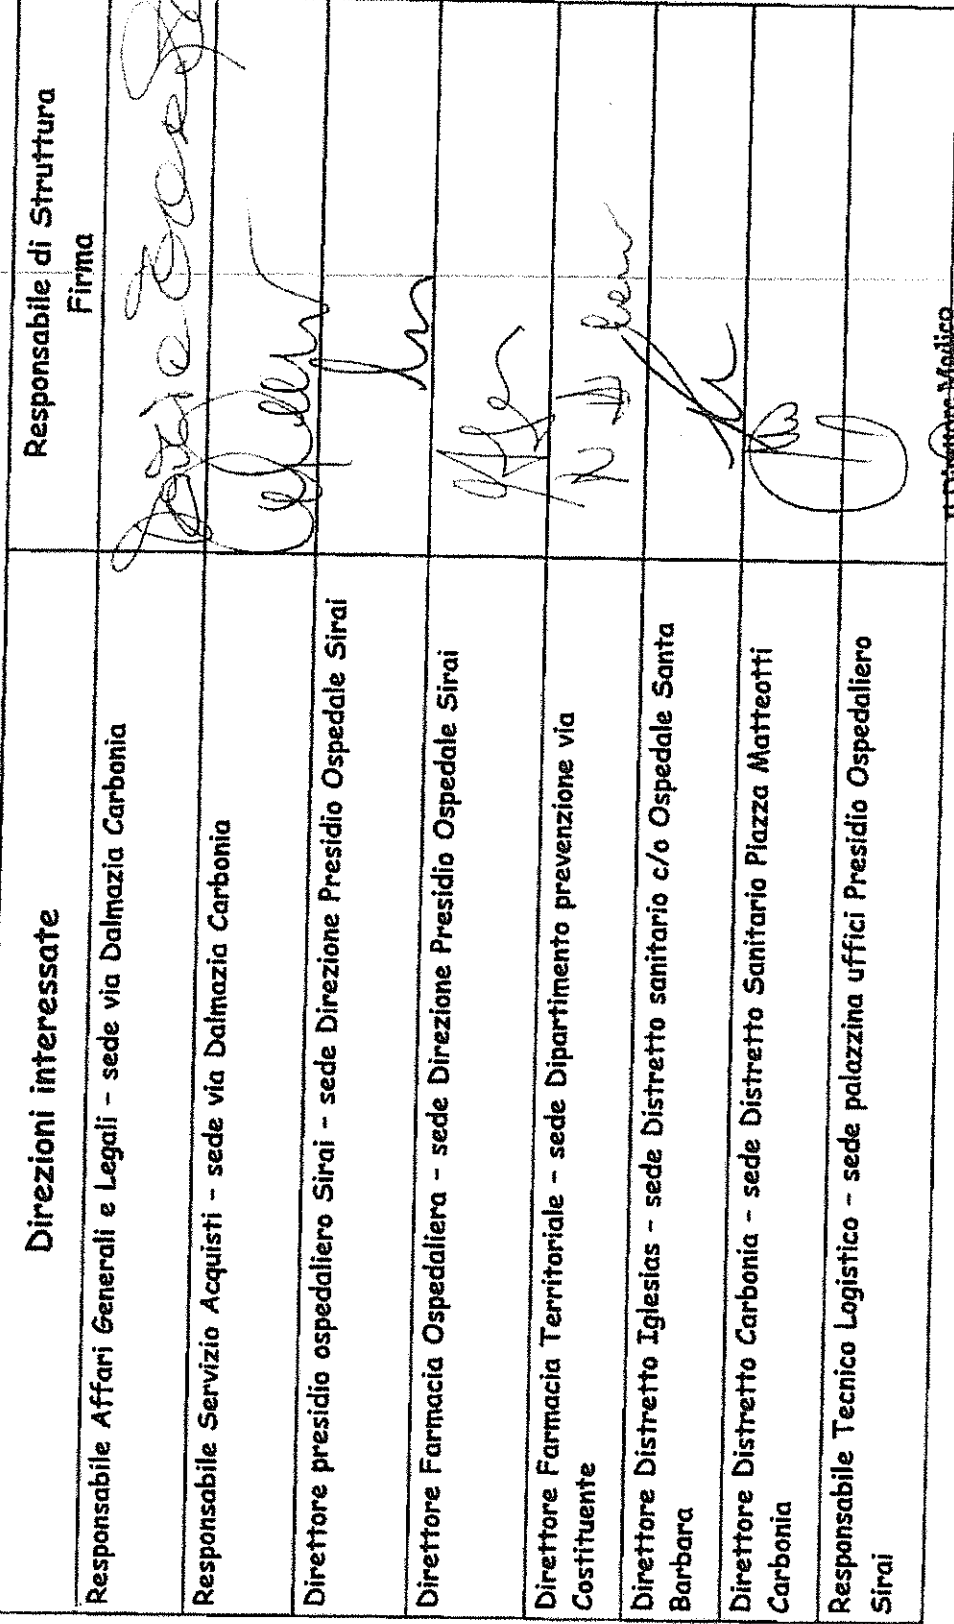 Direzioni interessate
Responsabile di Struttura
Firma
Responsabile Affari Generali e Legali - sede via Dalmazia Carbonia
Responsabile Servizio Acquisti - sede via Dalmazia Carbonia
Direttore presidio ospedaliero Sirai - sede Direzione Presidio Ospedale Sirai
Direttore Farmacia Ospedaliera - sede Direzione Presidio Ospedale Sirai
Direttore Farmacia Territoriale - sede Dipartimento prevenzione via
Costituente
Direttore Distretto Iglesias - sede Distretto sanitario c/o Ospedale Santa
Barbara
Direttore Distretto Carbonia - sede Distretto Sanitario Piazza Matteotti
Carbonia
Responsabile Tecnico Logistico - sede palazzina uffici Presidio Ospedaliero
Sirai
Il Direttore Medico